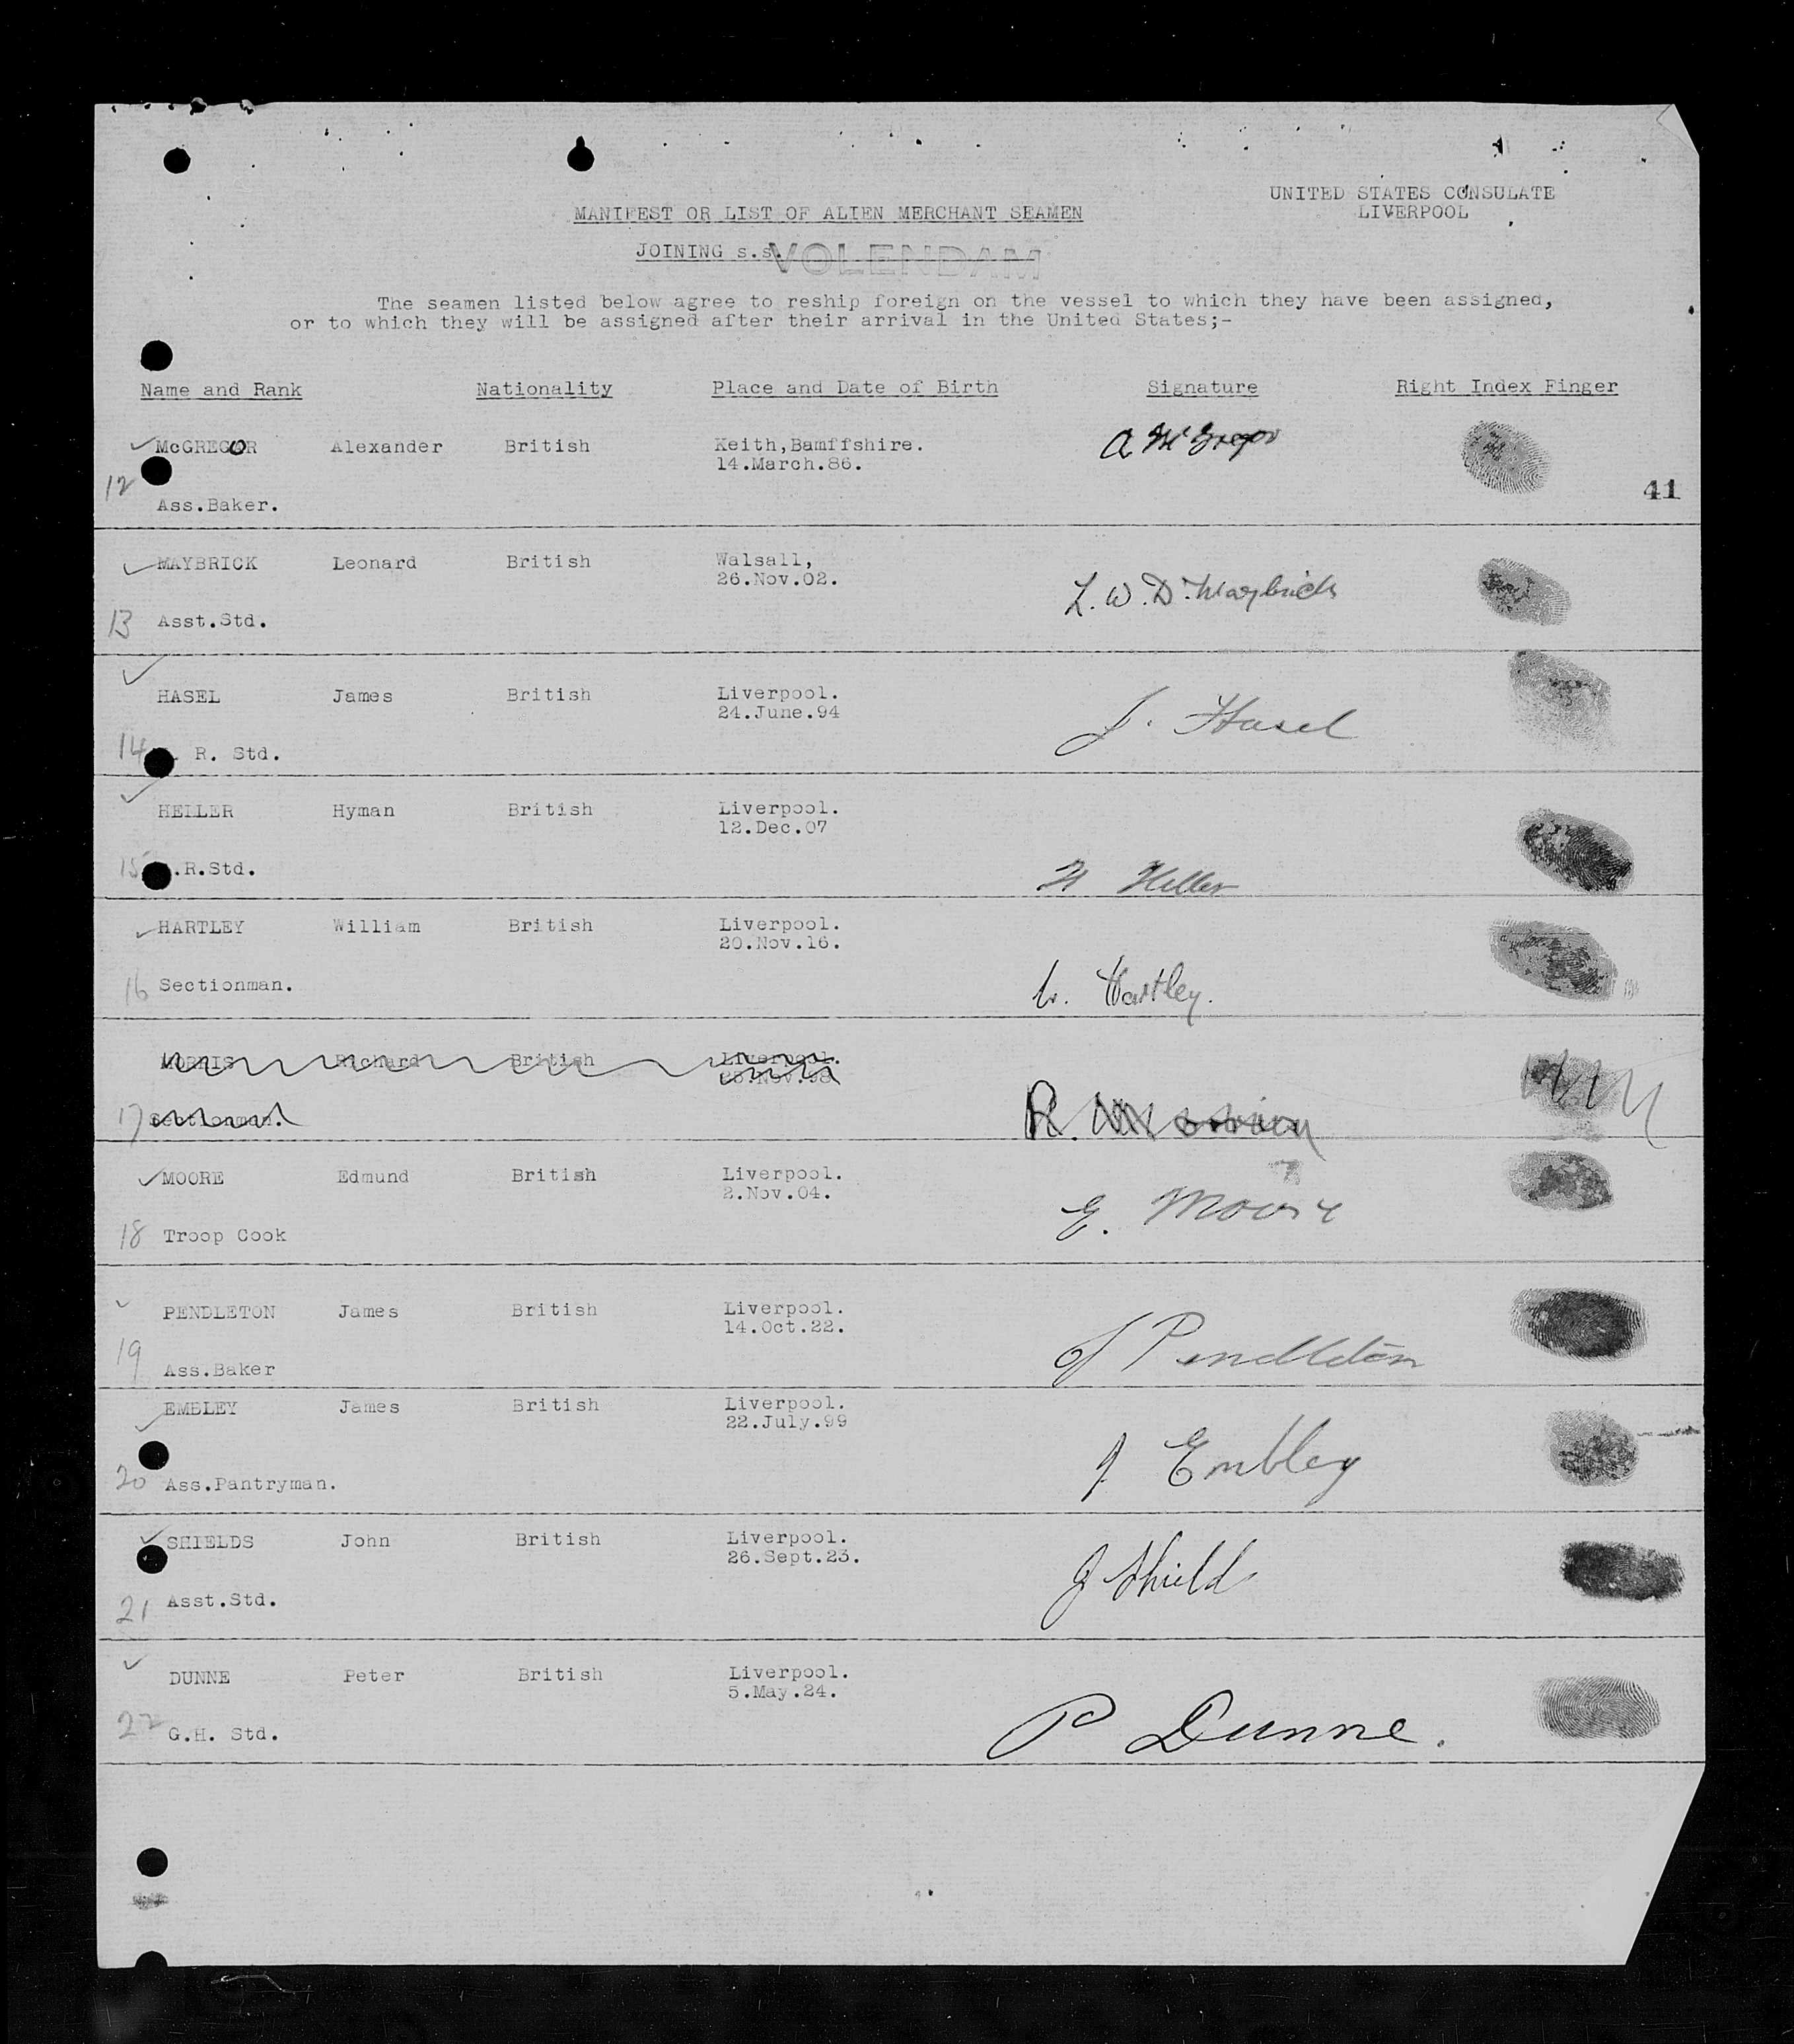 UNITED STATES CONSULATE
LIVERPOOL
MANIFEST OR LIST OF ALIEN MERCHANT SEAMEN
JOINING s.s. VOLENDAM
The seamen listed below agree to reship foreign on the vessel to which they have been assigned,
or to which they will be assigned after their arrival in the United States;-
Name and Rank Nationality Place and Date of Birth Signature Right Index Finger
McGREGOR Alexander British Keith,Bamffshire. A McGregor
14.March.86.
12 41
Ass.Baker.
MAYBRICK Leonard British Walsall,
26.Nov.02.
L. W. D. Maybrick
13 Asst.Std.
HASEL James British Liverpool.
24.June.94
J. Hasel
14 R. Std.
HELLER Hyman British Liverpool.
12.Dec.07
15 .R.Std. H Heller
HARTLEY William British Liverpool.
20.Nov.16.
16 Sectionman. W. Hartley.
MORRIS Richard British Liverpool.
17 Sectionman. R.
MOORE Edmund British Liverpool.
2.Nov.04.
E. Moore
18 Troop Cook
PENDLETON James British Liverpool.
14.Oct.22.
19 J Pendleton
Ass.Baker
EMBLEY James British Liverpool.
22.July.99
J Embley
20 Ass.Pantryman.
SHIELDS John British Liverpool.
26.Sept.23.
J Shield
21 Asst.Std.
DUNNE Peter British Liverpool.
5.May.24.
22 G.H. Std. P Dunne.